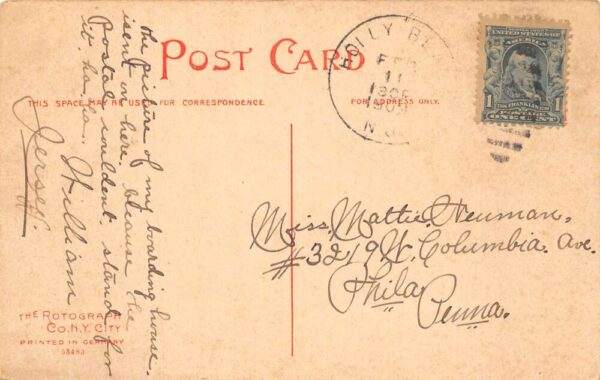 POST CARD
THIS SPACE MAY BE USED FOR CORRESPONDENCE.
FOR ADDRESS ONLY.
HOLLY BE
FEB
11
N.J.
UNITED STATES OF
AMERICA
1 1
FRANKLIN
POSTAGE
ONE CENT
the picture of my boarding house.
isent on here. because the
Postal couldent stand for
it. ha, ha. William
Jersey.
Miss. Mattie. Neuman.
#3219 W. Columbia Ave.
Phila
Penna.
THE ROTOGRAPH
CO. N.Y. CITY
PRINTED IN GERMANY
53483